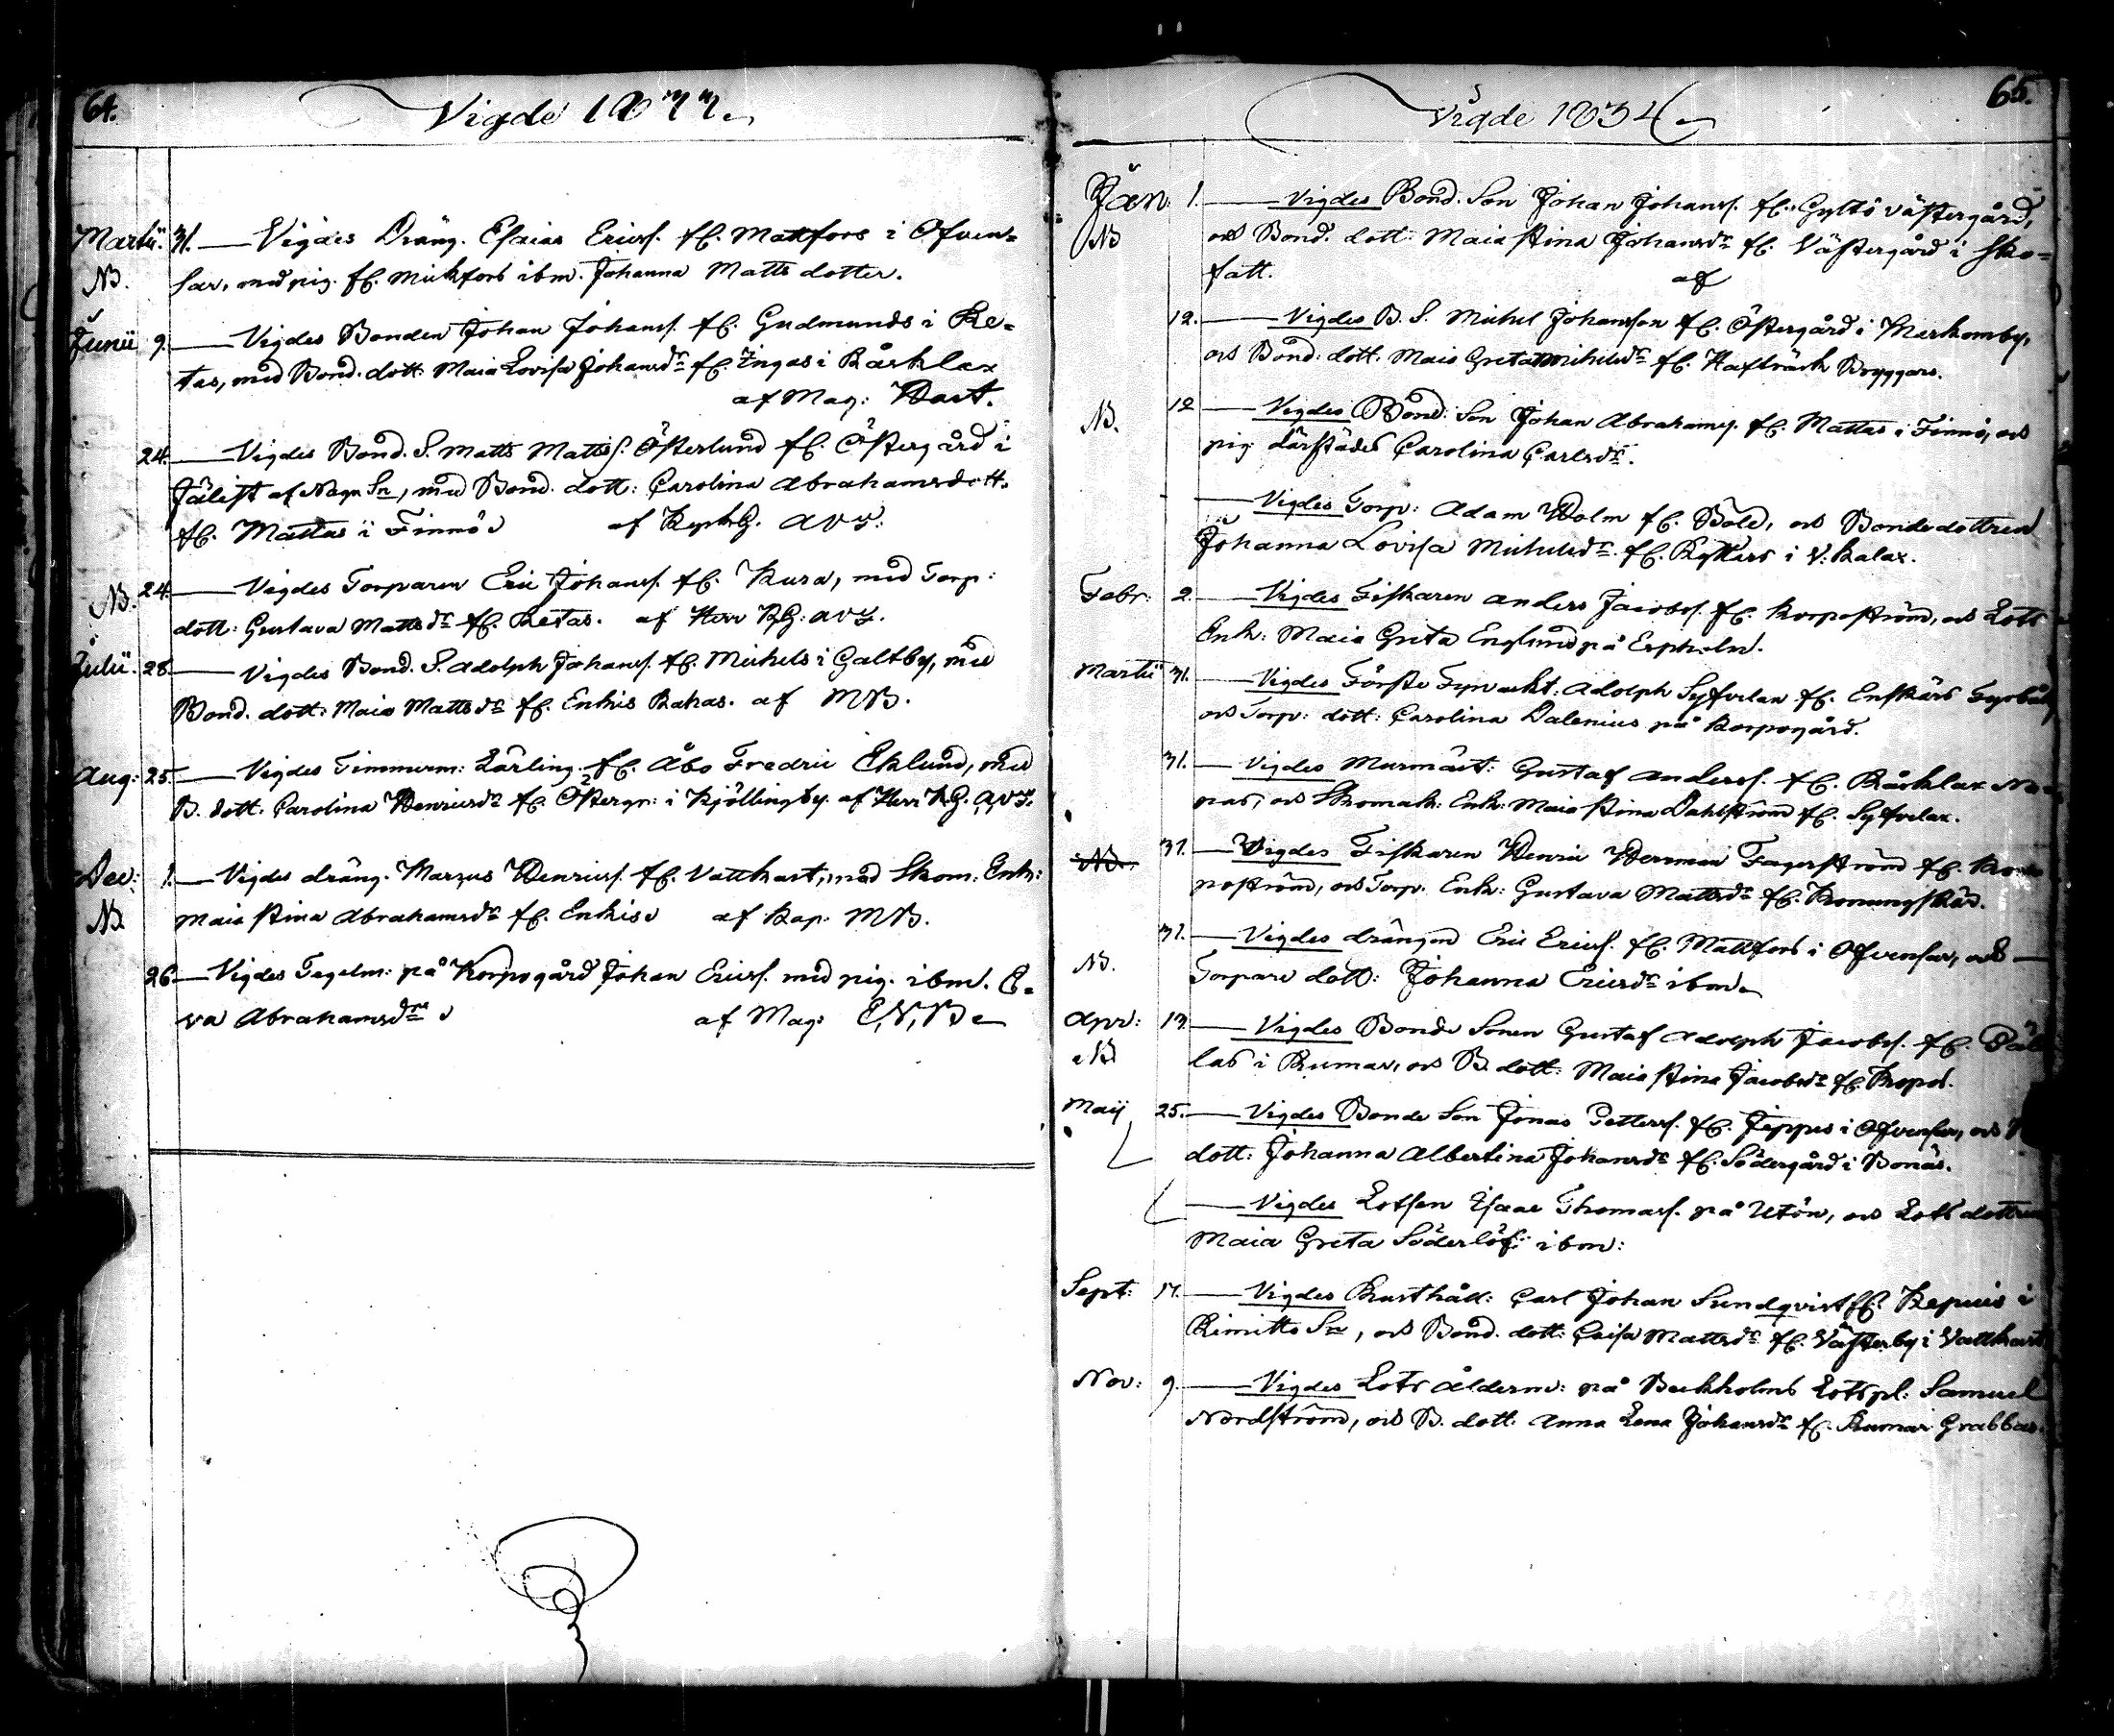 64.
Vigde 1833.
Martii. 31. Vigdes Dräng. Esaias Ericss. fr. Mattfors i Ofven-
NB. sar, med pig. fr. Mickfors ibm. Johanna Matts dotter.
Junii 9. Vigdes Bonden Johan Johanss. fr. Gudmunds i Re-
tas, med Bond. dott: Maia Lovisa Johansdr fr. Ingas i Kårklax
af Mag: Hast.
24. Vigdes Bond. S. Matts Mattss. Österlund fr. Östergård i
Jälist af Nagu Sn, med Bond. dott: Carolina Abrahamsdott.
fr. Mattas i Finnö af AVY.
NB. 24. Vigdes Torparen Eric Johanss. fr. Kura, med Torp:
dott: Gustava Mattsdr fr. Retas. af Herr AVY.
Julii. 28. Vigdes Bond. S. Adolph Johanss. fr. Michels i Galtby, med
Bond. dott: Maia Mattsdr fr. Enkis Rakas. af MB.
Aug: 25. Vigdes Timmerm: Lärling. fr. Åbo Fredric Eklund, med
B. dott. Carolina Henricsdr fr. Östergr: i Kjöllingby. af Herr AVY.
Dec: 1. Vigdes dräng. Marcus Henricss. fr. Vattkast, med Skom: Enk:
NB. Maia Stina Abrahamsdr fr. Enkis af Kap: MB.
26. Vigdes Tegelm: på Korpogård Johan Ericss. med pig. ibm. E-
va Abrahamsdr af Mag:
65.
Vigde 1834
Jan: 1. Vigdes Bond. Son Johan Johanss. fr. Gyltö Västergård,
NB och Bond. dott: Maia Stina Johansdr fr. Västergård i Sko-
fatt.
af
12. Vigdes B. S. Michel Johansson fr. Östergård i Markomby,
och Bond: dott. Maia Greta Michelsdr fr. Hafträsk Bryggars.
NB. 12 Vigdes Bond: Son Johan Abrahamss. fr. Mattas i Finnö, och
pig därstädes Carolina Carlsdr.
Vigdes Torp: Adam Holm fr. Böle, och Bondedottren
Johanna Lovisa Michelsdr. fr. Ryttars i V: Kalax.
Febr: 2. Vigdes Fiskaren Anders Jacobss. fr. Korpoström, och Lots
Enk: Maia Greta Englund på Erpholm.
Martii 31. Vigdes Förste Fyrvakt: Adolph Syfvelan fr. Enskärs Fyrbåk
och Torp: dott: Carolina Dalenius på Korpogård.
31. Vigdes Murmäst: Gustaf Anderss. fr. Kårklax
och Skomak: Enk: Maia Stina Dahlström fr. Syfvelax.
NB. 31. Vigdes Fiskaren Henric Herman Fagerström fr. Kor-
poström, och Torp. Enk: Gustava Mattsdr fr. Konungskär.
31. Vigdes drängen Eric Ericss. fr. Mattfors i Ofvensar, och
NB. Torpare dott: Johanna Ericsdr ibm.
Apr: 13. Vigdes Bonde Sonen Gustaf Adolph Jacobss. fr. Päl
NB las i Rumar, och B. dott: Maia Stina Jacobsdr fr.
Maij 25. Vigdes Bonde Son Jonas Petterss. fr. Jeppes i Ofvensar, och
dott: Johanna Albertina Johansdr fr. Södergård i Bonäs.
Vigdes Lotsen Isaac Thomass. på Utön, och Lots dottren
Maia Greta Söderlöf: ibm:
Sept: 17. Vigdes Rusthåll: Carl Johan Sundqvist fr. i
Kimitto Sn, och Bond. dott: Caisa Mattsdr fr. Västerby i Vattkast
Nov: 9. Vigdes Lots Ålderm: på Berkholms Lotspl: Samuel
Nordström, och B. dott. Anna Lena Johansdr fr. Rumar Grabbas.